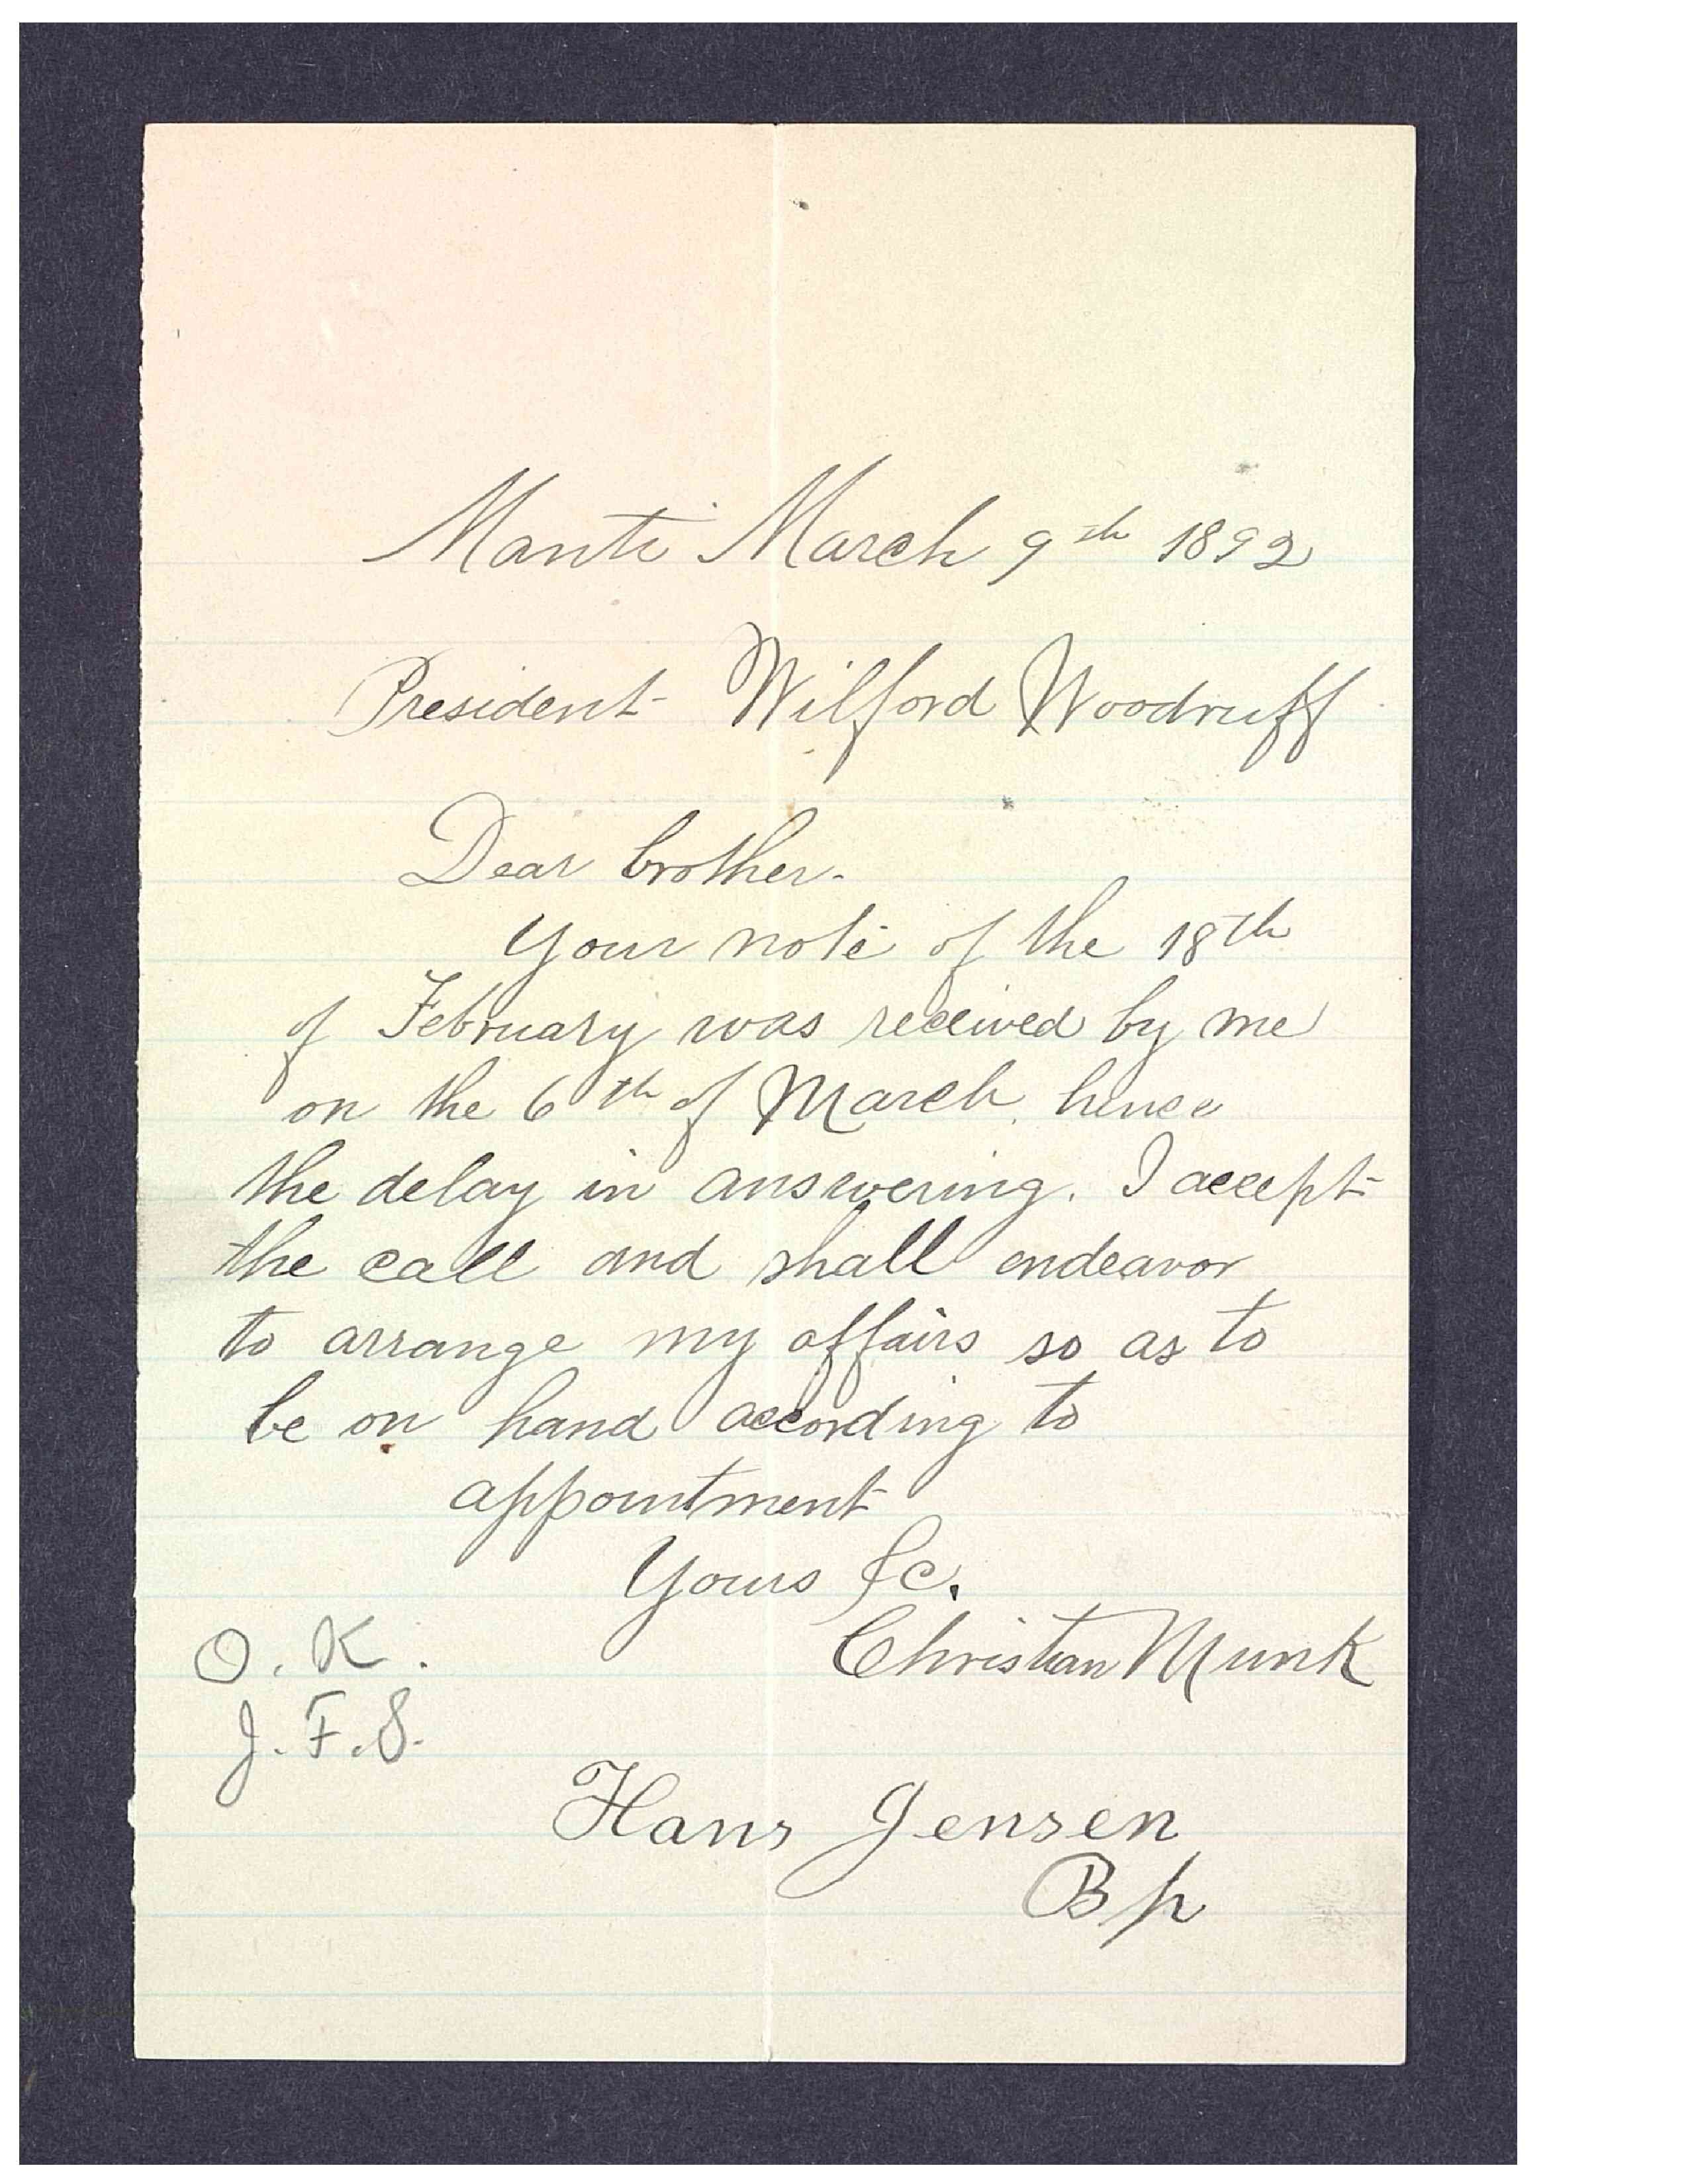 Manti March 9th 1892
President Wilford Woodruff
Dear brother.
Your note of the 18th
of February was received by me
on the 6th of March, hence
the delay in answering. I accept
the call and shall endeavor
to arrange my affairs so as to
be on hand according to
appointment
Yours &c.
Christian Munk
O. K.
J. F. S.
Hans Jensen
Bp